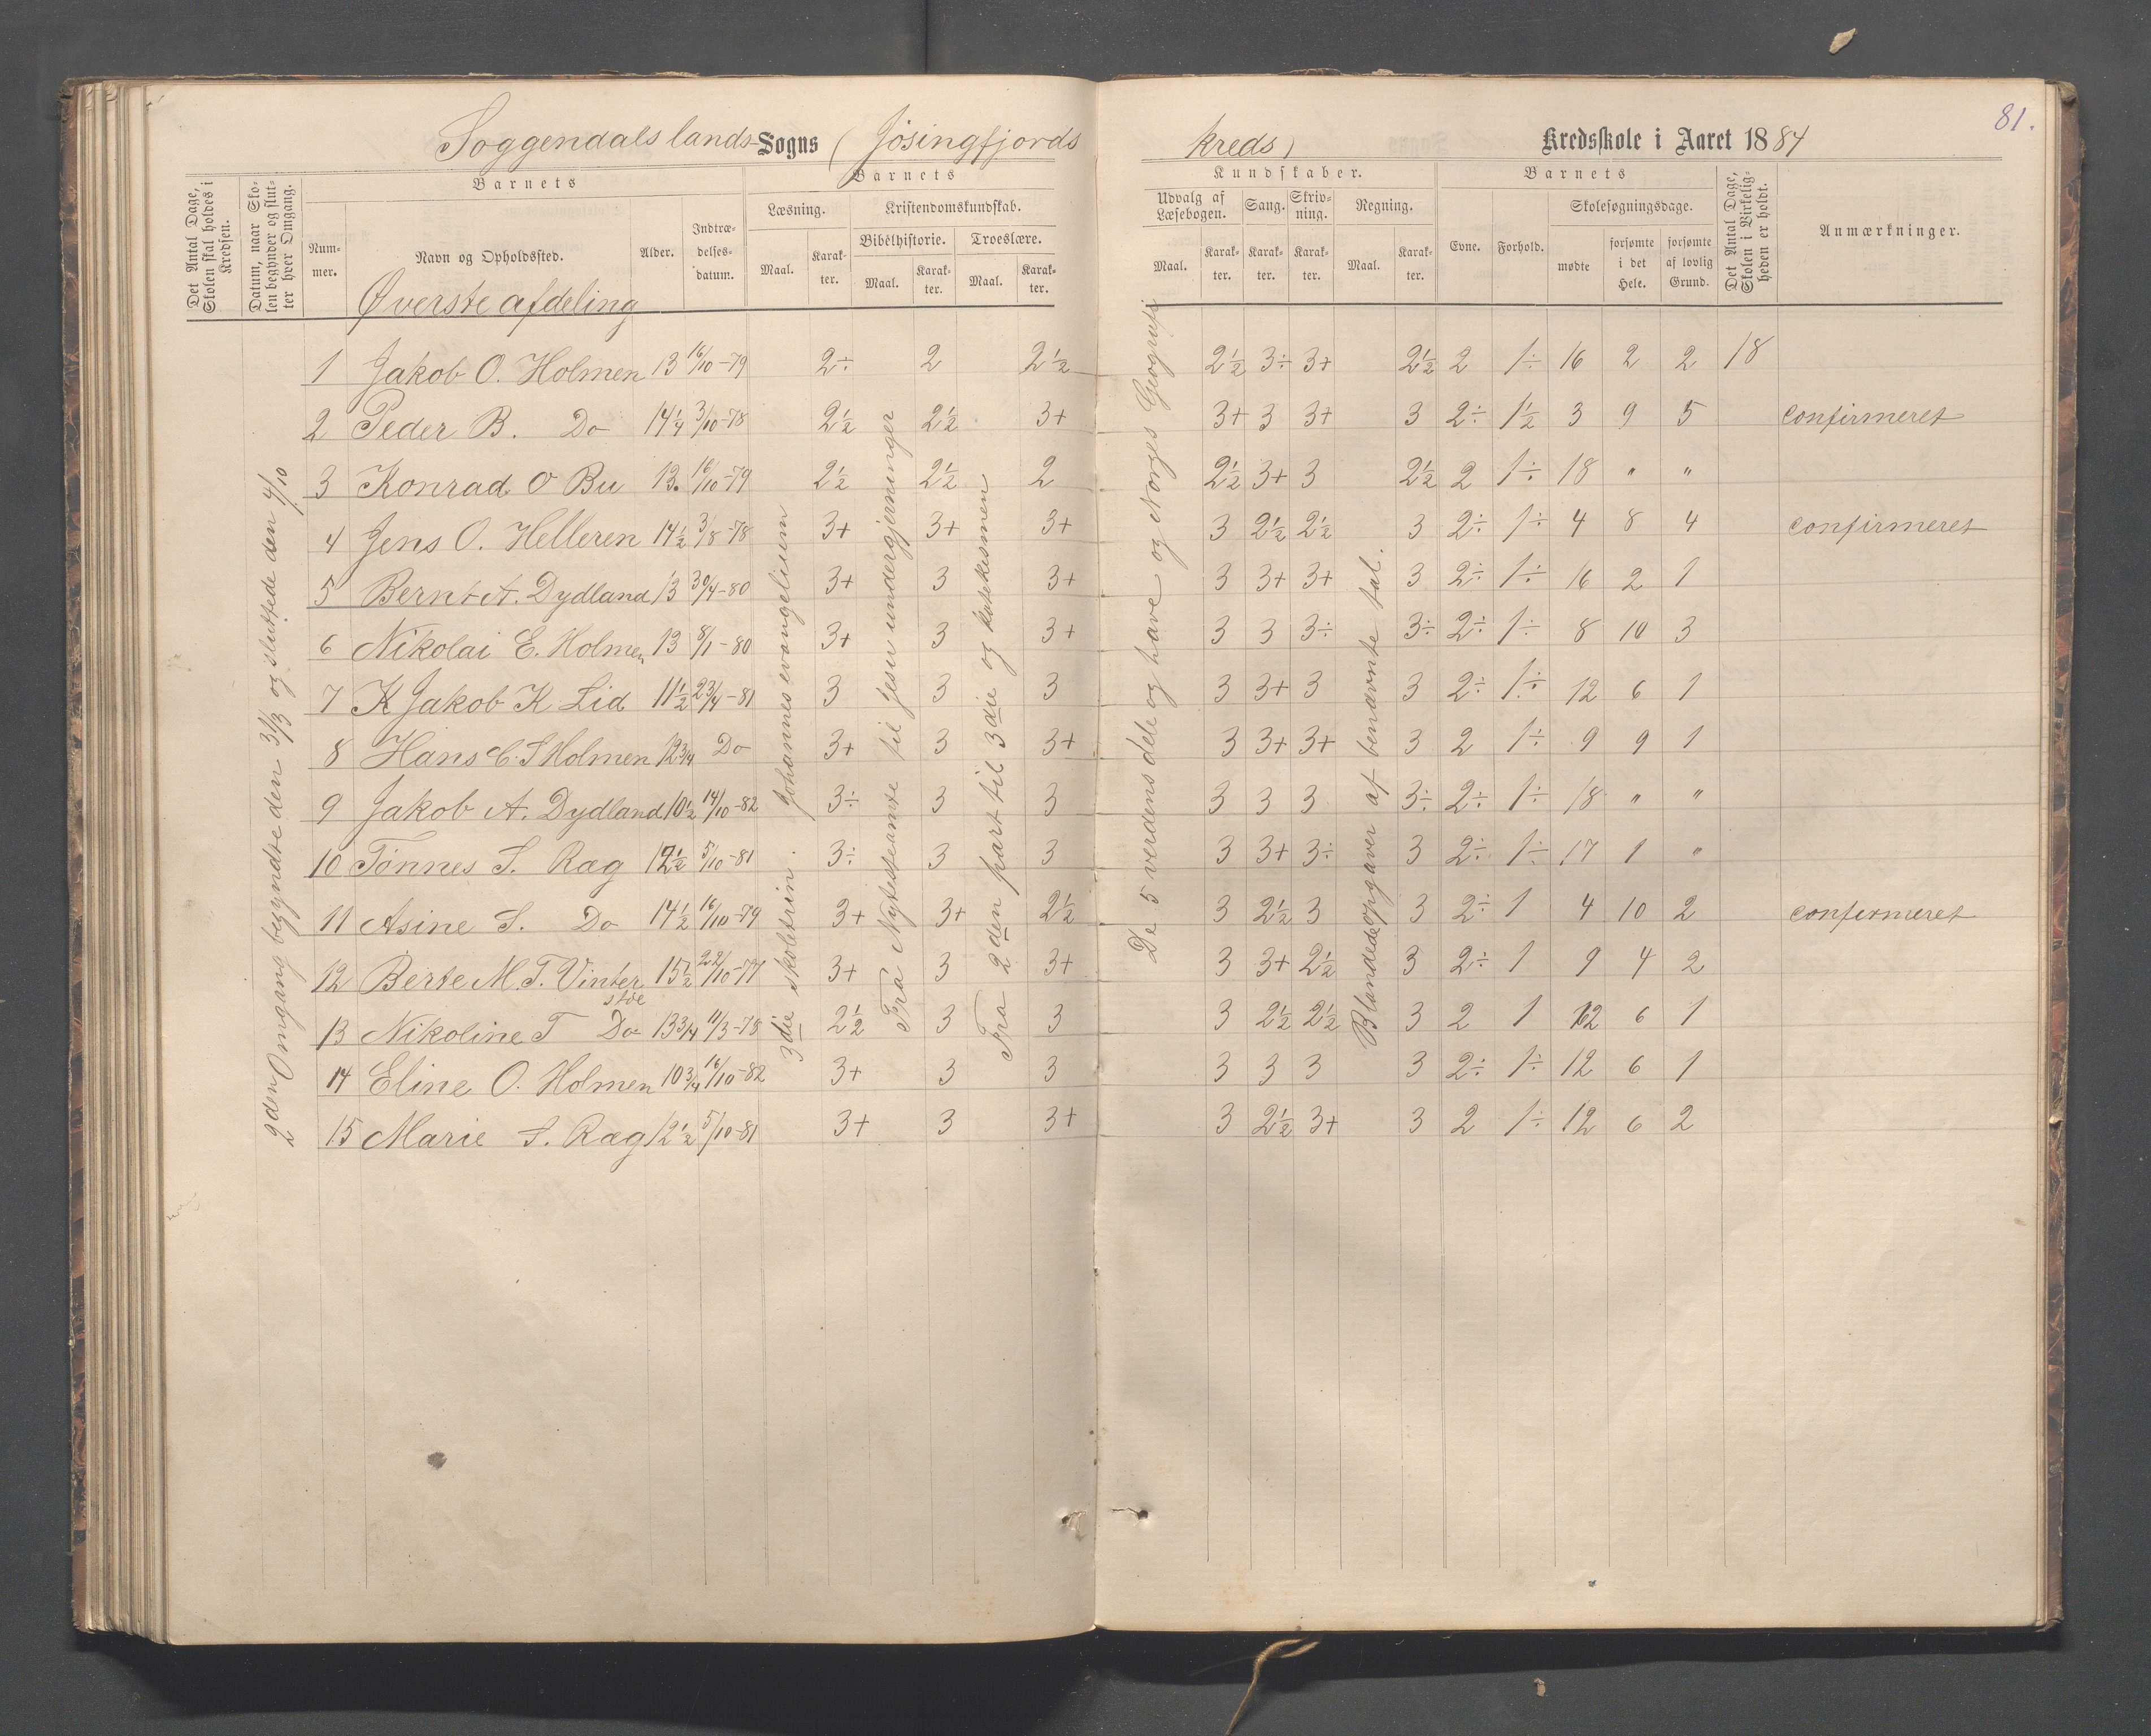 81.
Soggendals lands Sogns (Jösingfjords kreds) Kredsskole i Aaret 1884
Det Antal Dage, Skolen skal holdes i Kredsen.
Datum, naar Skolen begynder og slutter hver Omgang.
Barnets
Nummer.
Navn og Opholdssted.
Alder.
Indtrædelsesdatum.
Barnets
Læsning.
Maal.
Karakter.
Kristendomskundskab.
Bibelhistorie.
Maal.
Karakter.
Troeslære.
Maal.
Karakter.
Kundskaber.
Udvalg af Læsebogen.
Maal.
Karakter.
Sang.
Karakter.
Skrivning.
Karakter.
Regning.
Maal.
Karakter.
Barnets
Evne.
Forhold.
Skolesøgningsdage.
mødte
forsømte i det Hele.
forsømte af lovlig Grund.
Det Antal Dage, Skolen i Virkeligheden er holdt.
Anmærkninger.
Øverste afdeling
2den Omgang begyndte den 31/3 og sluttede den 4/10
3die skoletrin. Johannes evangelium
Fra Nytesteamte til Jesu undergjerninger
Fra 2den part til 3die og katekismen
De 5 verdensdele og have og Norges Geografi
Blandede opgaver af benævnte tal.
1 Jakob O. Holmen 13 16/10-79 2÷ 2 2½ 2½ 3÷ 3+ 2½ 2 1÷ 16 2 2 18
2 Peder B. Do 14¼ 3/10-78 2½ 2½ 3+ 3+ 3 3+ 3 2÷ 1½ 3 9 5 confirmeret
3 Konrad O Bu 13. 16/10-79 2½ 2½ 2 2½ 3+ 3 2½ 2 1÷ 18 " "
4 Jens O. Helleren 14½ 3/8-78 3+ 3+ 3+ 3 2½ 2½ 3 2÷ 1÷ 4 8 4 confirmeret
5 Bernt A. Dydland 13 30/4-80 3+ 3 3+ 3 3+ 3+ 3 2÷ 1÷ 16 2 1
6 Nikolai E. Holmen 13 8/1-80 3+ 3 3+ 3 3 3÷ 3÷ 2÷ 1÷ 8 10 3
7 K Jakob K Lid 11½ 23/4-81 3 3 3 3 3+ 3 3 2÷ 1÷ 12 6 1
8 Hans C. S Holmen 12¾ Do 3+ 3 3+ 3 3+ 3+ 3 2 1÷ 9 9 1
9 Jakob A. Dydland 10½ 14/10-82 3÷ 3 3 3 3 3 3÷ 2÷ 1÷ 18 " "
10 Tönnes S. Ræg 12½ 5/10-81 3÷ 3 3 3 3+ 3÷ 3 2÷ 1÷ 17 1 "
11 Asine S. Do 14½ 16/10-79 3+ 3+ 2½ 3 2½ 3 3 2÷ 1 4 10 2 confirmeret
12 Berte M. T. Vinterstöe 15½ 22/10-77 3+ 3 3+ 3 3+ 2½ 3 2÷ 1 9 4 2
13 Nikoline T Do 13¾ 11/3-78 2½ 3 3 3 2½ 2½ 3 2 1 12 6 1
14 Eline O. Holmen 10¾ 16/10-82 3+ 3 3 3 3 3 3 2÷ 1÷ 12 6 1
15 Marie S. Ræg 12½ 5/10-81 3+ 3 3+ 3 2½ 3+ 3 2 1÷ 12 6 2